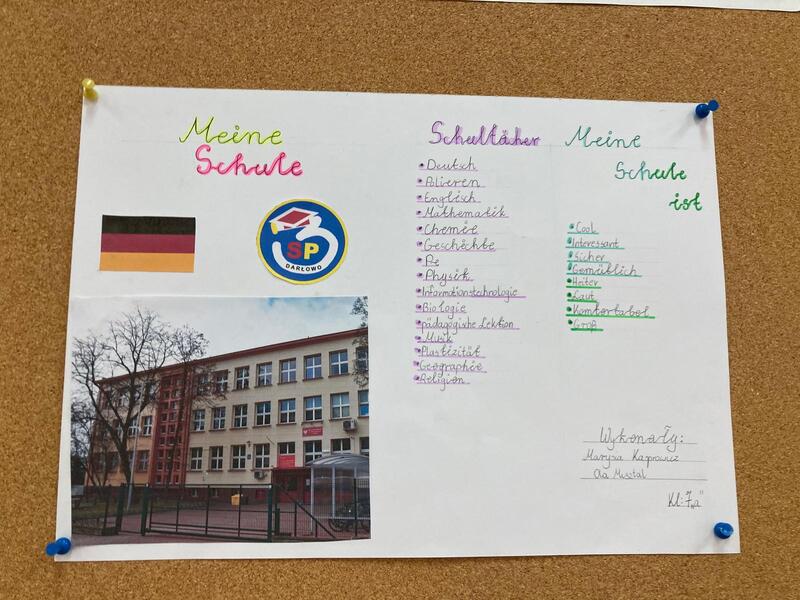 Meine
Schule
SP
3
DARŁOWO
Schulfächer
• Deutsch
• Polieren
• Englisch
• Mathematik
• Chemie
• Geschichte
• Pe
• Physik
• Informationstechnologie
• Biologie
• pädagogische Lektion
• Musik
• Plastizität
• Geographie
• Religion
Meine
Schule
ist
• Cool
• Interessant
• Sicher
• Gemütlich
• Heiter
• Laut
• Komfortabel
• Groß
Wykonały:
Marysia Karpowicz
Ola Musztal
Kl: 7„a"